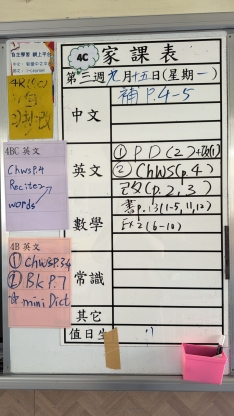 自主學習 網上平台
4C
家課表
第三週九月十五日(星期一)
中文
補 P.4-5
英文
① PD(2)+改(1)
② CHWS(p.4)
(p.2,3)
數學
書p.13(1-5,11,12)
Ex2(6-10)
常識
其它
值日生
4BC 英文
CHWS P.4
Recite 7
words
4B 英文
① CHWS P.34
② BK P.7
☆ mini Dict